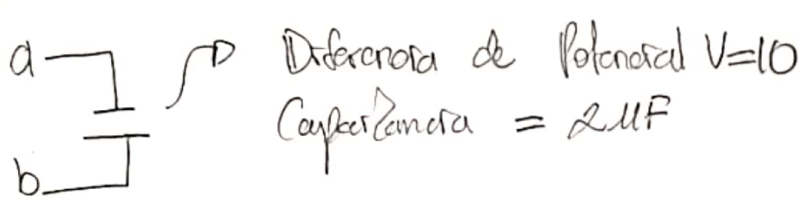 a
Diferencia de Potencial V=10
Capacitancia = 2 μF
b